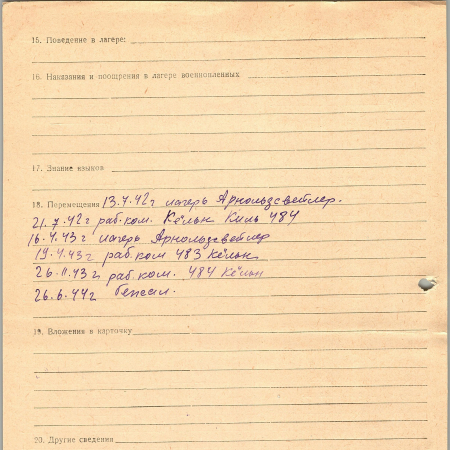 15. Поведение в лагере:
16. Наказания и поощрения в лагере военнопленных
17. Знание языков
18. Перемещения 13.7.42 г лагерь Арнольдсвейлер.
21.7.42 г раб.ком. Кёльн Киль 484
16.4.43 г лагерь Арнольдсвейлер
19.4.43 г раб.ком 483 Кёльн
26.11.43 г раб.ком. 484 Кёльн
26.6.44 г
19. Вложения в карточку
20. Другие сведения